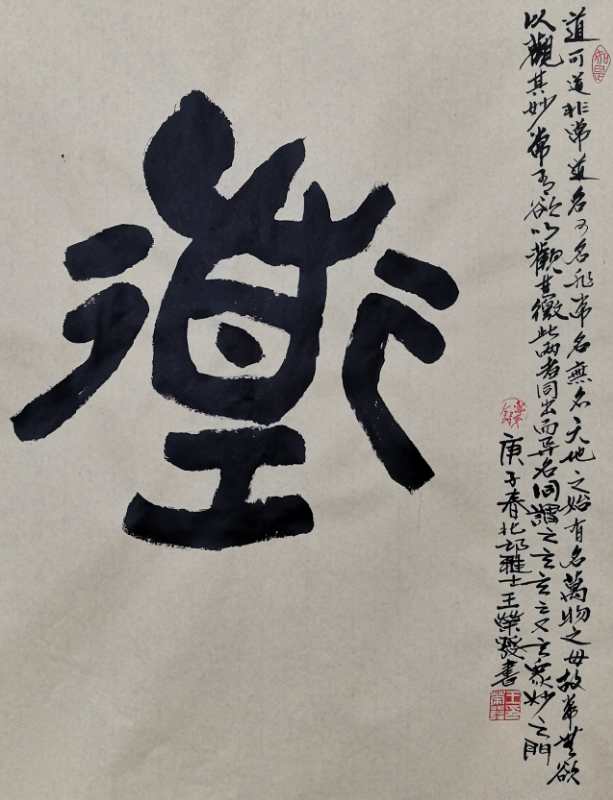 道
道可道非常道名可名非常名無名天地之始有名萬物之母故常無欲
以觀其妙常有欲以觀其徼此兩者同出而异名同謂之玄玄之又玄衆妙之門
庚子春北邙雅士王榮發書